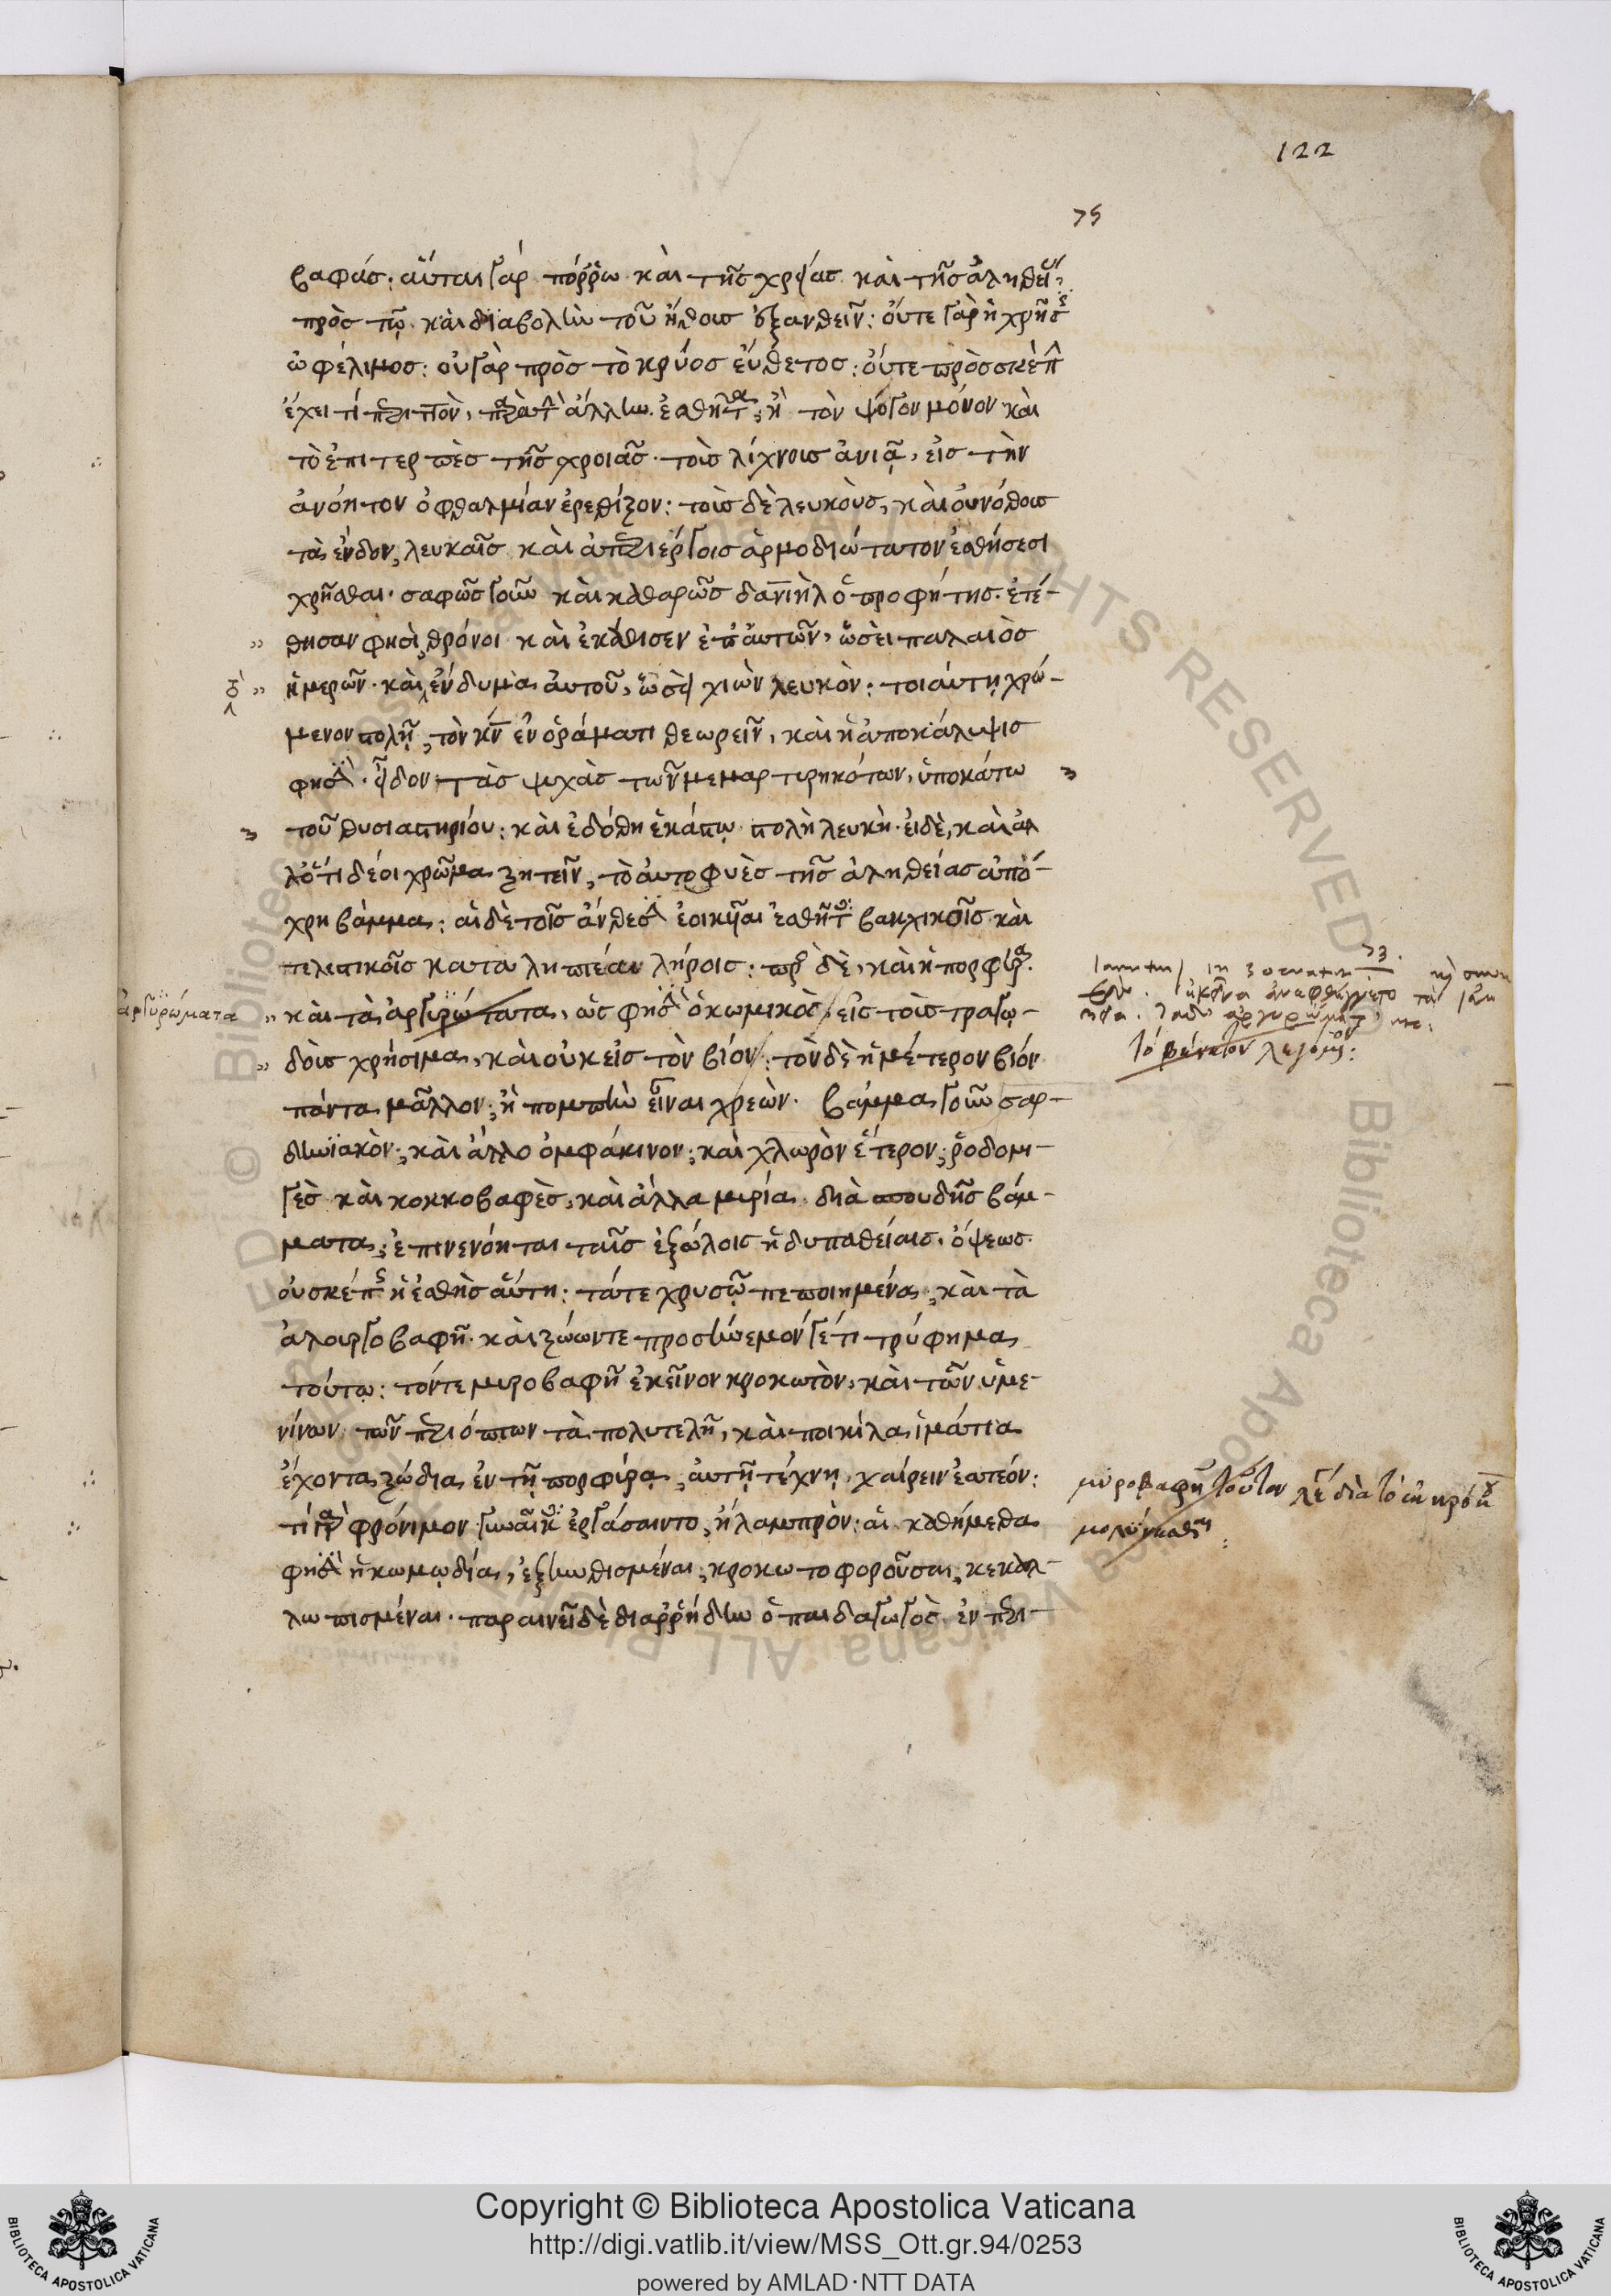 122
75
βαφάς· αὗται γὰρ πόρρω καὶ τῆς χρείας καὶ τῆς ἀληθείας
πρὸς τῷ καὶ διαβολὴν τοῦ ἤθους ἐξανθεῖν: οὔτε γὰρ ἡ χρῆσις
ὠφέλιμος: οὐ γὰρ πρὸς τὸ κρύος εὔθετος: οὔτε πρὸς σκέπην
ἔχει τί περιττὸν, παρὰ τὴν ἄλλην ἐσθῆτα, ἢ τὸν ψόγον μόνον καὶ
τὸ ἐπιτερπὲς τῆς χροιᾶς τοὺς λίχνους ἀνιᾷ, εἰς τὴν
ἀνόητον ὀφθαλμίαν ἐρεθίζον: τοὺς δὲ λευκοὺς, καὶ οὐ νόθους
τὰ ἔνδον, λευκαῖς καὶ ἀπεριέργοις ἁρμοδιώτατον ἐσθήσεσι
χρῆσθαι· σαφῶς γοῦν καὶ καθαρῶς δανιὴλ ὁ προφήτης· ἐτέ-
θησαν φησὶ, θρόνοι καὶ ἐκάθισεν ἐπ' αὐτῶν, ὡσεὶ παλαιὸς
τὸ
ἡμερῶν· καὶ ἔνδυμα αὐτοῦ, ὡσεὶ χιὼν λευκὸν: τοιαύτῃ χρώ-
μενον στολῇ, τὸν κν ἐν ὁράματι θεωρεῖν, καὶ ἡ ἀποκάλυψις
φησὶν· εἶδον τὰς ψυχὰς τῶν μεμαρτυρηκότων, ὑποκάτω
τοῦ θυσιαστηρίου: καὶ ἐδόθη ἑκάστῳ στολὴ λευκὴ· εἰ δὲ, καὶ ἄλ
λό τι δέοι χρῶμα ζητεῖν, τὸ αὐτοφυὲς τῆς ἀληθείας ἀπό-
χρη βάμμα: αἱ δὲ τοῖς ἄνθεσιν ἐοικυῖαι ἐσθῆτες βακχικοῖς καὶ
τελεστικοῖς καταλειπτέαι λήροις: πρὸς δὲ, καὶ ἡ πορφύρα
ἀργυρώματα
καὶ τὰ ἀργυρώτατα, ὡς φησὶν ὁ κωμικὸς εἰς τοὺς τραγῳ-
δοὺς χρήσιμα, καὶ οὐκ εἰς τὸν βίον: τὸν δὲ ἡμέτερον βίον
πάντα μᾶλλον, ἢ πομπὴν εἶναι χρεών. βάμμα γοῦν σαρ-
διανϊακὸν, καὶ ἄλλο ὀμφάκινον, καὶ χλωρὸν ἕτερον, ῥοδομι-
γὲς καὶ κοκκοβαφὲς, καὶ ἄλλα μυρία διὰ σπουδῆς βάμ-
ματα, ἐπινενόηται ταῖς ἐξώλοις ἡδυπαθείαις. ὄψεως
οὐ σκέπης ἡ ἐσθὴς αὕτη: τά τε χρυσῷ πεποιημένα, καὶ τὰ
ἁλουργοβαφῆ καὶ ζώωντε προσήνεμόν γέ τι τρύφημα
τούτῳ: τόν τε μυροβαφῆ ἐκεῖνον κροκωτὸν, καὶ τῶν ὑμε-
νίνων τῶν περιόπτων τὰ πολυτελῆ, καὶ ποικίλα ἱμάτια
ἔχοντα ζώδια ἐν τῇ πορφύρᾳ, αὐτῇ τέχνῃ, χαίρειν ἐατέον:
τί γὰρ φρόνιμον γυναῖκες ἐργάσαιντο, ἢ λαμπρὸν: αἳ καθήμεθα
φησὶν ἡ κωμῳδία, ἐξηνθισμέναι, κροκωτοφοροῦσαι, κεκαλ-
λωπισμέναι. παραινεῖ δὲ διαρρήδην ὁ παιδαγωγὸς ἐν περι-
73.
τὸ βένετον λεγόμενον:
μυροβαφῆ τοῦτον λέγει διὰ τὸ ἐν κρόκῳ
μολύνεσθαι:
Copyright © Biblioteca Apostolica Vaticana
http://digi.vatlib.it/view/MSS_Ott.gr.94/0253
powered by AMLAD·NTT DATA
BIBLIOTECA APOSTOLICA VATICANA
BIBLIOTECA APOSTOLICA VATICANA